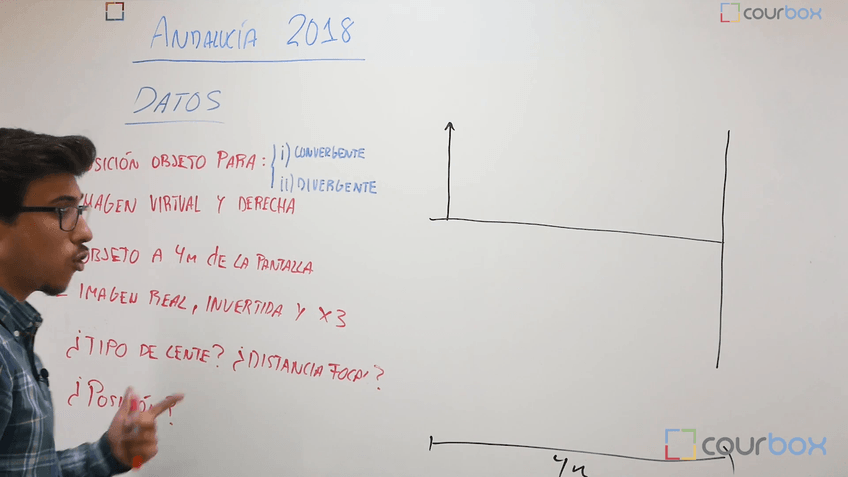 courbox
ANDALUCÍA 2018
DATOS
POSICIÓN OBJETO PARA: i) CONVERGENTE
ii) DIVERGENTE
IMAGEN VIRTUAL Y DERECHA
OBJETO A 4m de LA PANTALLA
- IMAGEN REAL, INVERTIDA Y x3
¿TIPO DE LENTE? ¿DISTANCIA FOCAL?
¿POSICIÓN?
4m
courbox